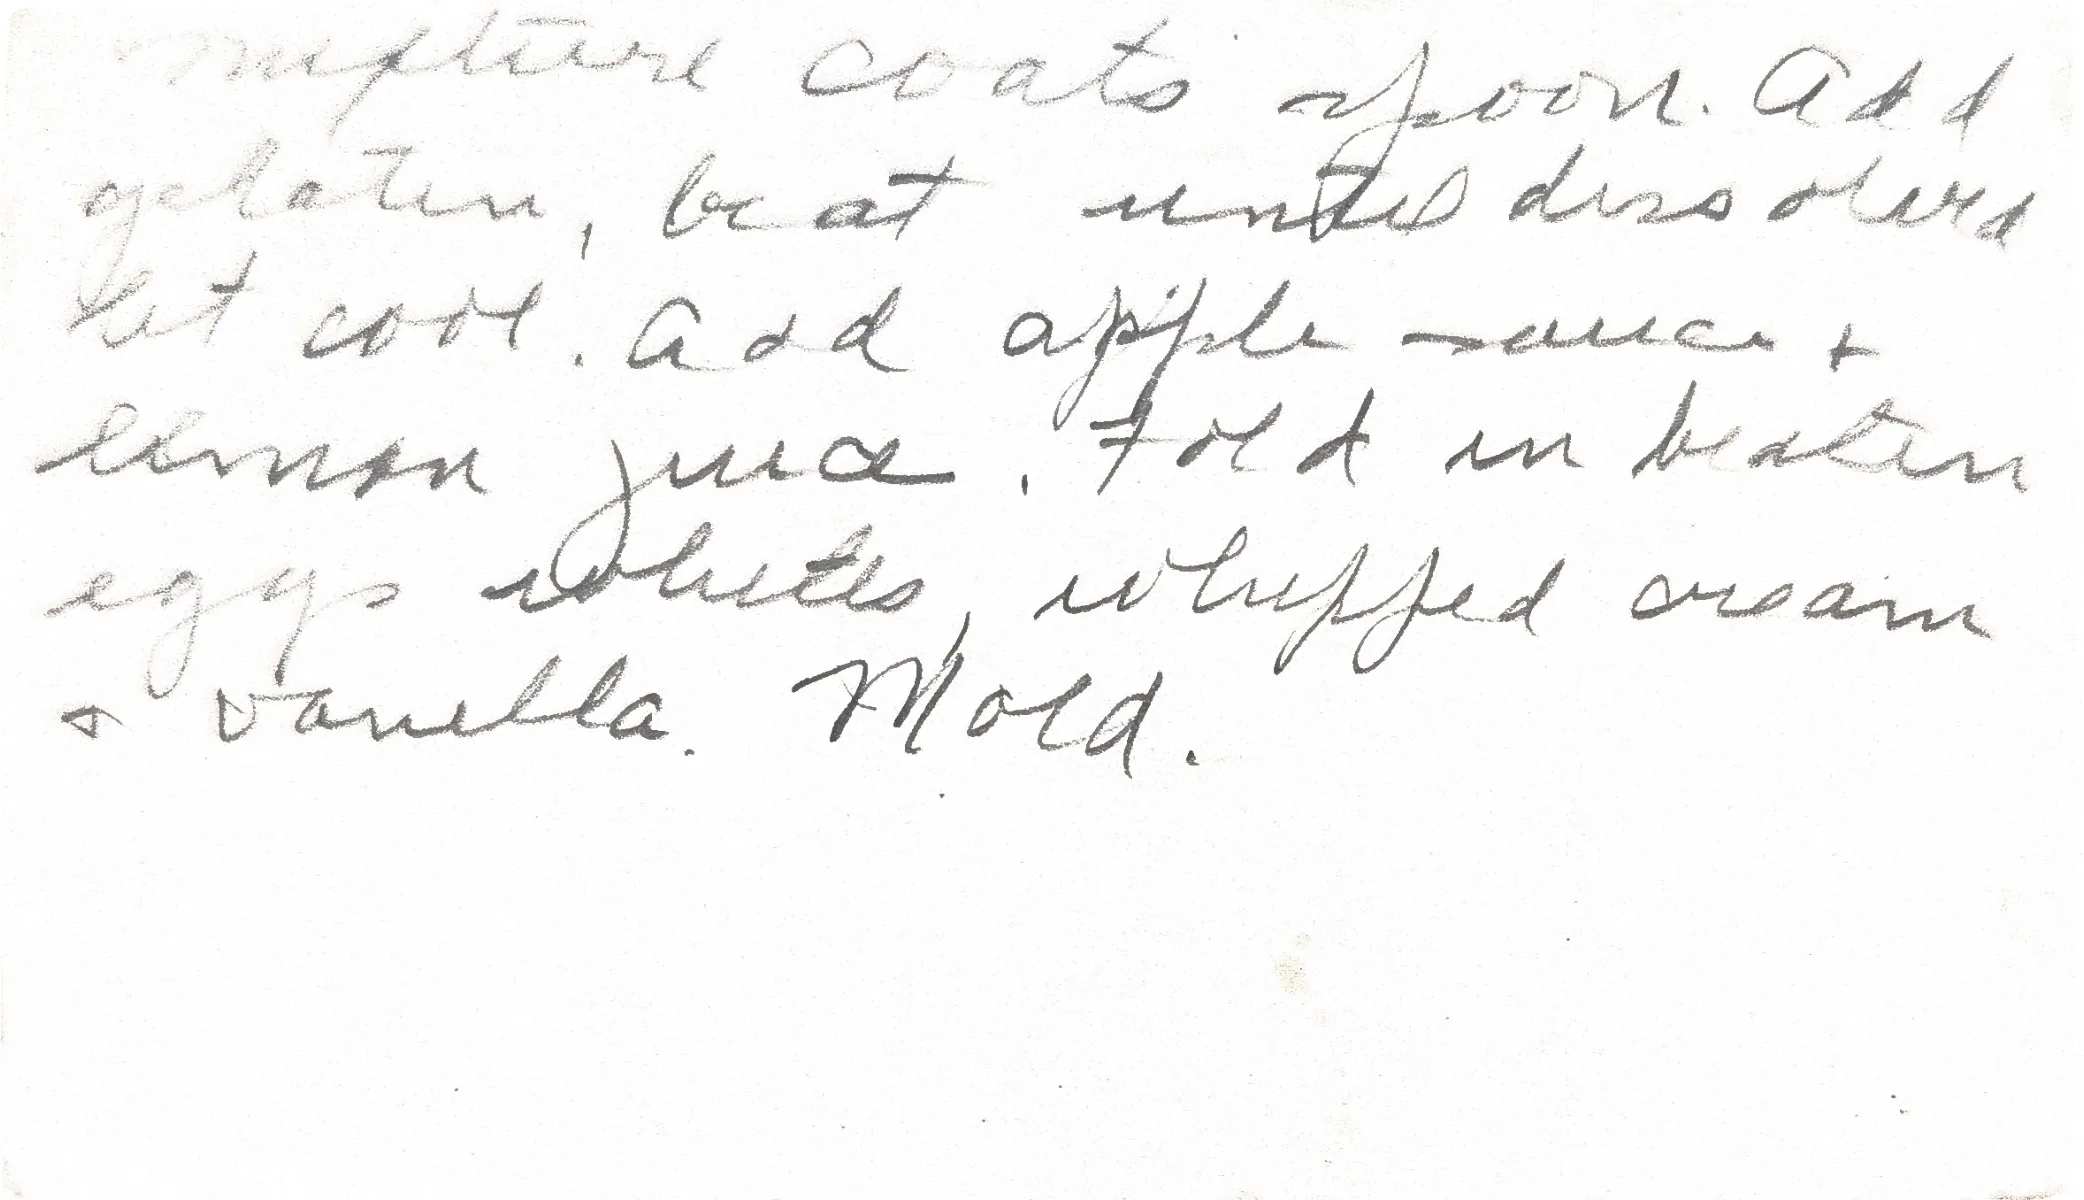 mixture coats spoon. Add
gelatin, beat until dissolved
let cool. Add apple sauce +
lemon juice. Fold in beaten
eggs whites, whipped cream
+ vanilla. Mold.